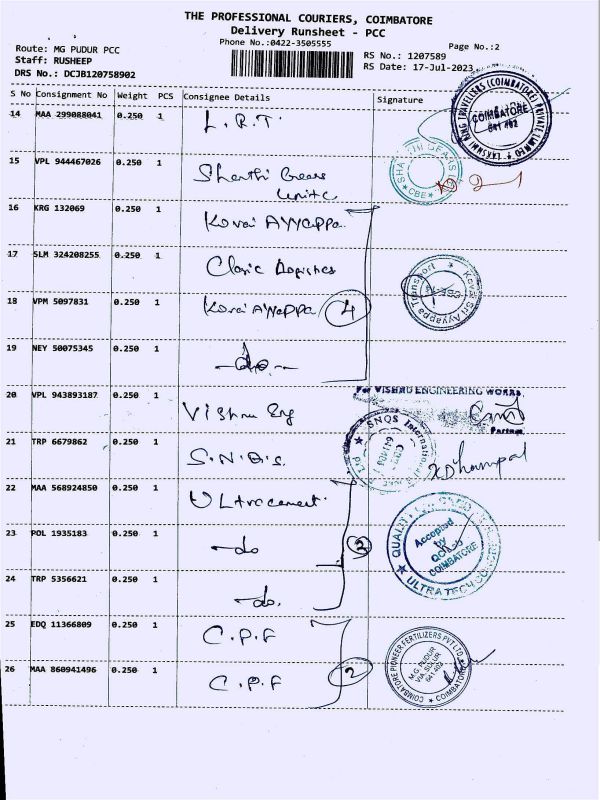 THE PROFESSIONAL COURIERS, COIMBATORE
Delivery Runsheet - PCC
Phone No.:0422-3505555
Page No.:2
Route: MG PUDUR PCC
Staff: RUSHEEP
DRS No.: DCJB120758902
RS No.: 1207589
RS Date: 17-Jul-2023
S No Consignment No Weight PCS Consignee Details Signature
14 MAA 299088041 0.250 1 L.R.T.
LAKSHMI RING TRAVELLERS (COIMBATORE) PRIVATE LIMITED
COIMBATORE
641 402
15 VPL 944467026 0.250 1 Shanthi Gears
Unit
SHANTHI GEARS
CBE
16 KRG 132069 0.250 1 Kovai AYYappa
17 SLM 324208255 0.250 1
18 VPM 5097831 0.250 1 Kovai AYYappa 4
Kovai Sri Ayyappa Transport
19 NEY 50075345 0.250 1 -do-
20 VPL 943893187 0.250 1 Vishnu Eng
For VISHNU ENGINEERING WORKS.
Partner
21 TRP 6679862 0.250 1 S.N.Q.S.
SNQS International
22 MAA 568924850 0.250 1 Ultracement
23 POL 1935183 0.250 1 -do 3
Accepted
by
COIMBATORE
24 TRP 5356621 0.250 1 -do.
25 EDQ 11366809 0.250 1 C.P.F
26 MAA 860941496 0.250 1 C.P.F 2
COIMBATORE PIONEER FERTILIZERS PVT. LTD.
M.G. PUDUR
VIA-SULUR
641 402
COIMBATORE